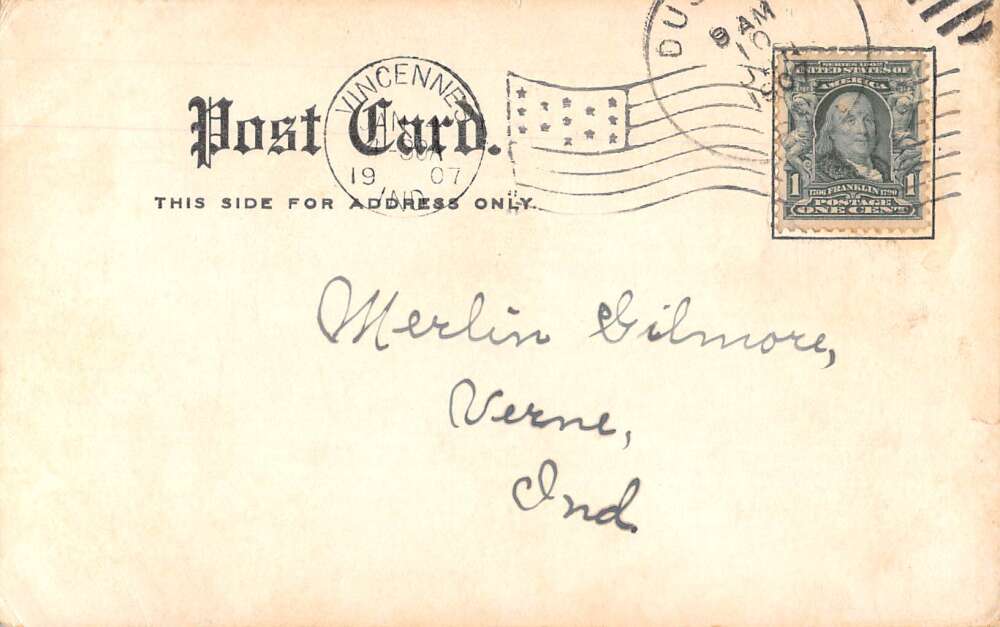 Post Card.
THIS SIDE FOR ADDRESS ONLY.
VINCENNES
19 07
IND.
9 AM
10
SERIES 1902
UNITED STATES OF
AMERICA
1 1706 FRANKLIN 1790 1
POSTAGE
ONE CENT
Merlin Gilmore,
Verne,
Ind.